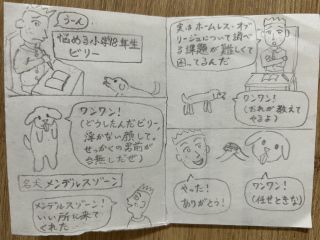 うーん
悩める小学18年生
ビリー
ワンワン!
(どうしたんだビリー、
浮かない顔して。
せっかくの男前が
台無しだぜ)
名犬メンデルスゾーン
メンデルスゾーン!
いい所に来て
くれた
実はホームレス・オブ
リージュについて調べ
る課題が難しくて
困ってるんだ
ワンワン!
(おれが教えて
やるよ)
やった!
ありがとう!
ワンワン!
(任せときな)